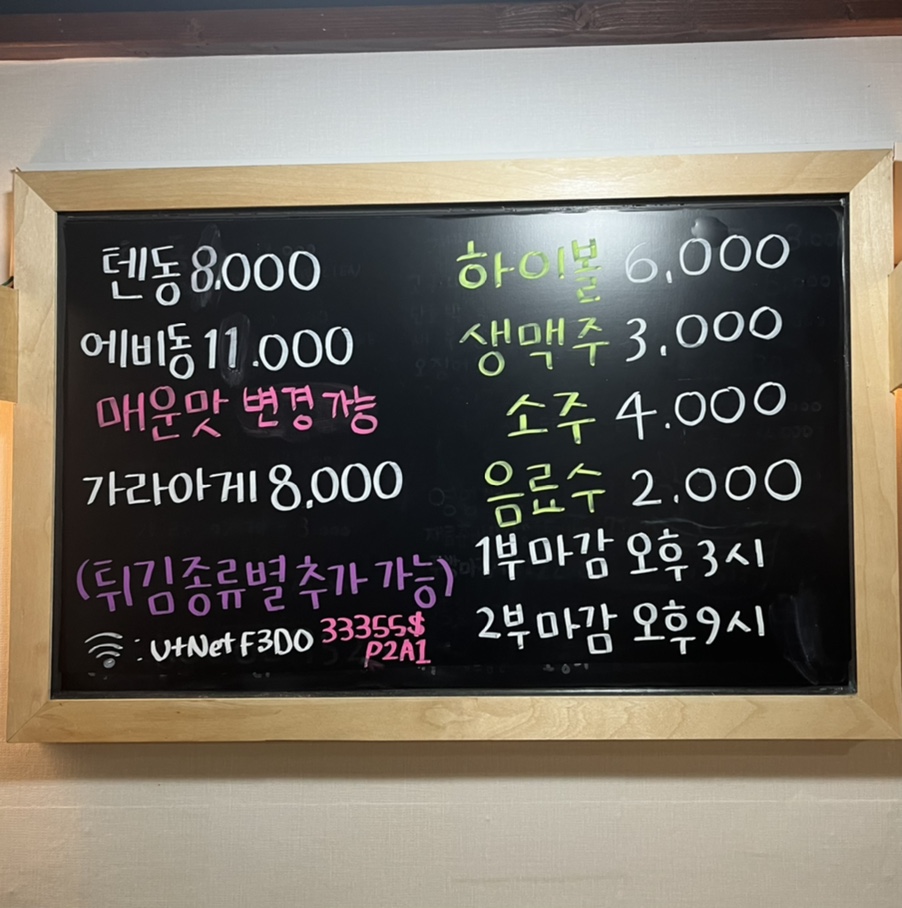 텐동 8.000
에비동 11.000
매운맛 변경 가능
가라아게 8,000
(튀김종류별 추가 가능)
: U+Net F3D0 33355$
P2A1
하이볼 6,000
생맥주 3.000
소주 4.000
음료수 2.000
1부마감 오후 3시
2부마감 오후 9시